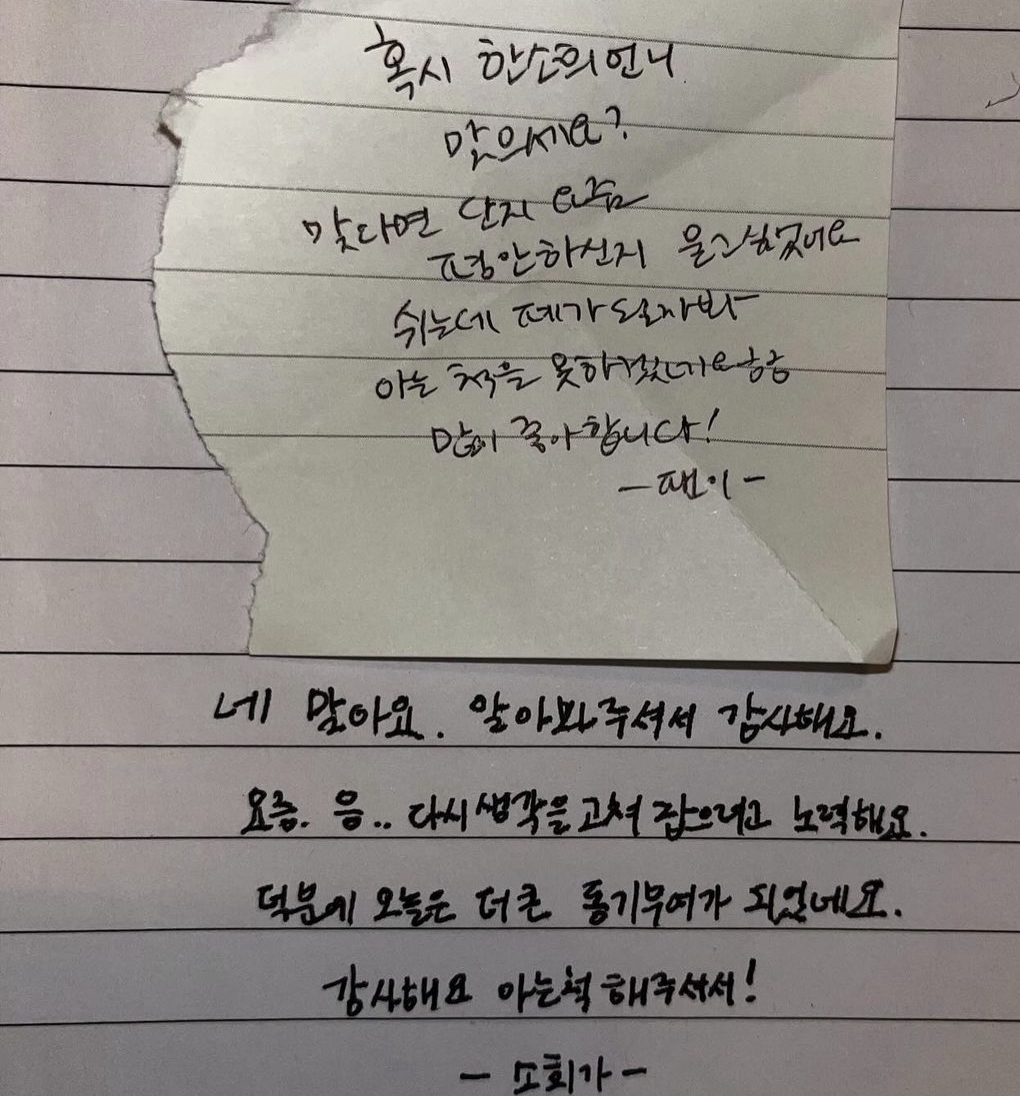 혹시 한소희 언니
맞으세요?
맞다면 단지 요즘
평안하신지 묻고 싶었어요
쉬는데 폐가 될까봐
아는 척을 못하겠네요 ㅎㅎ
많이 좋아합니다!
- 팬이 -
네 맞아요. 알아봐주셔서 감사해요.
요즘. 음.. 다시 생각을 고쳐 잡으려고 노력해요.
덕분에 오늘은 더 큰 동기부여가 되었네요.
감사해요 아는척 해주셔서!
- 소희가 -